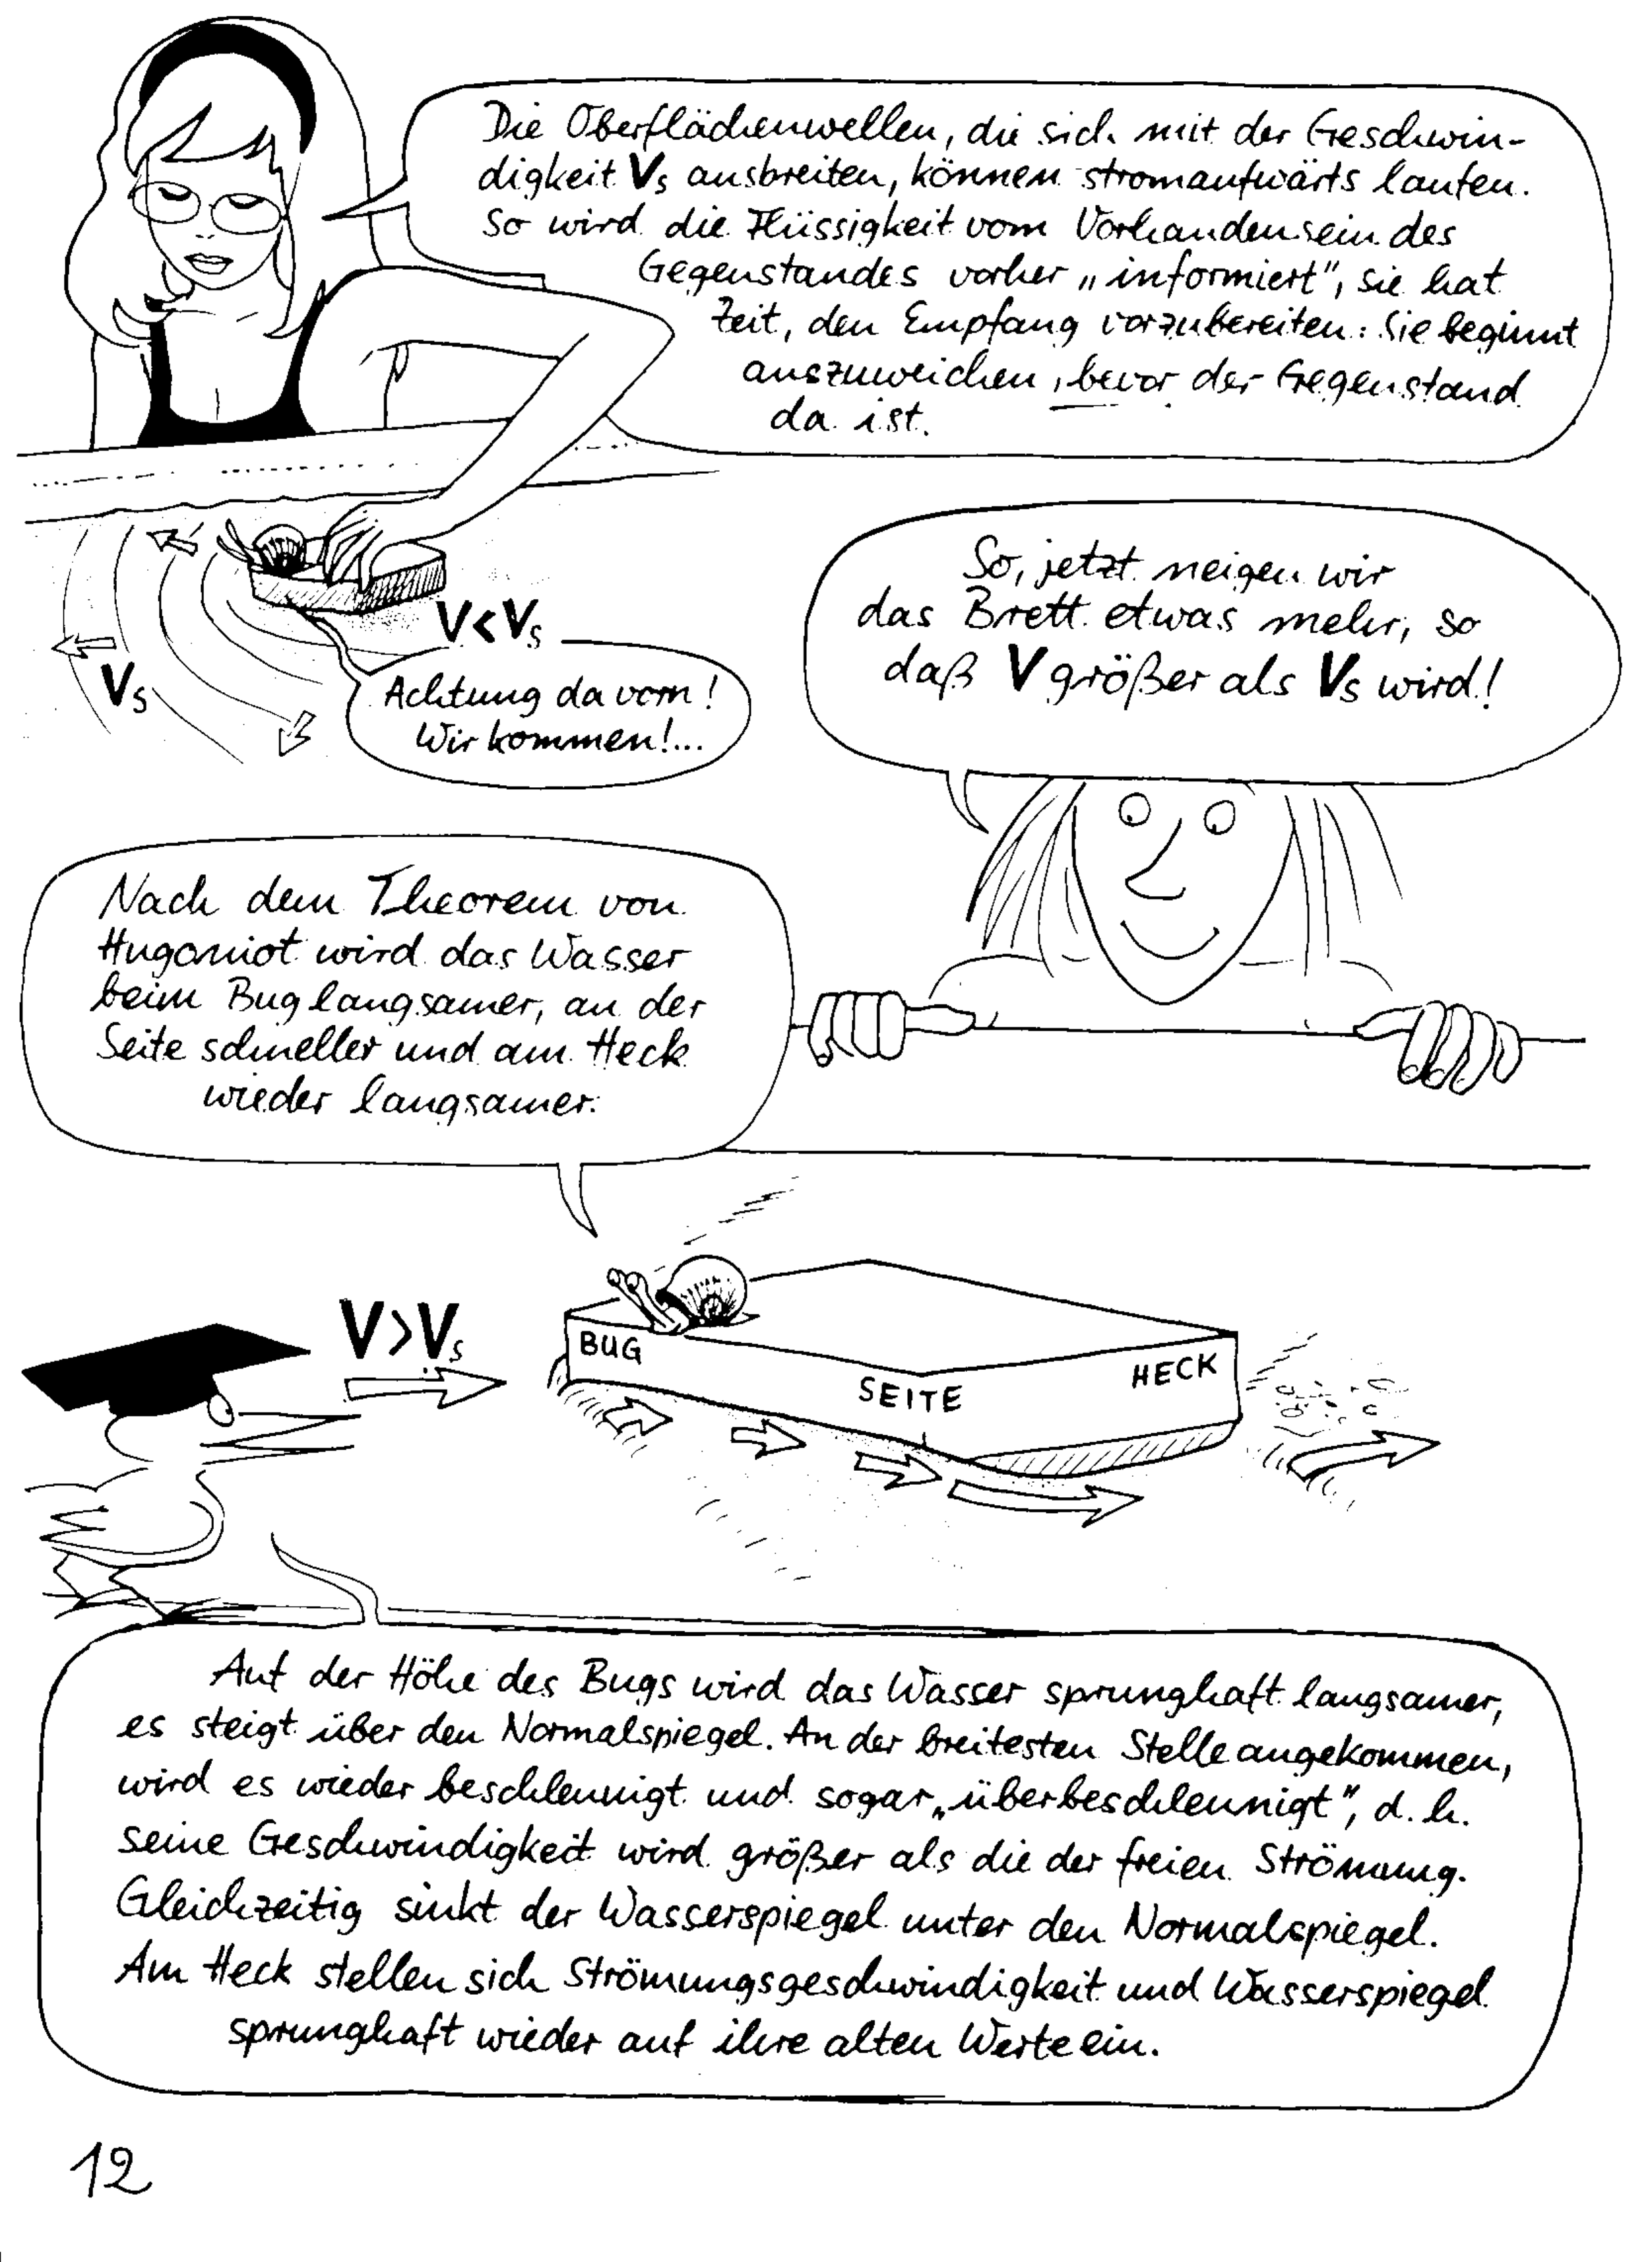 Die Oberflächenwellen, die sich mit der Geschwin-
digkeit Vs ausbreiten, können stromaufwärts laufen.
So wird die Flüssigkeit vom Vorhandensein des
Gegenstandes vorher „informiert", sie hat
Zeit, den Empfang vorzubereiten: Sie beginnt
auszuweichen, bevor der Gegenstand
da ist.
V<Vs
Vs
Achtung da vorn!
Wir kommen!...
So, jetzt neigen wir
das Brett etwas mehr, so
daß V größer als Vs wird!
Nach dem Theorem von
Hugoniot wird das Wasser
beim Bug langsamer, an der
Seite schneller und am Heck
wieder langsamer.
V>Vs
BUG
SEITE
HECK
Auf der Höhe des Bugs wird das Wasser sprunghaft langsamer,
es steigt über den Normalspiegel. An der breitesten Stelle angekommen,
wird es wieder beschleunigt und sogar „überbeschleunigt", d.h.
seine Geschwindigkeit wird größer als die der freien Strömung.
Gleichzeitig sinkt der Wasserspiegel unter den Normalspiegel.
Am Heck stellen sich Strömungsgeschwindigkeit und Wasserspiegel
sprunghaft wieder auf ihre alten Werte ein.
12